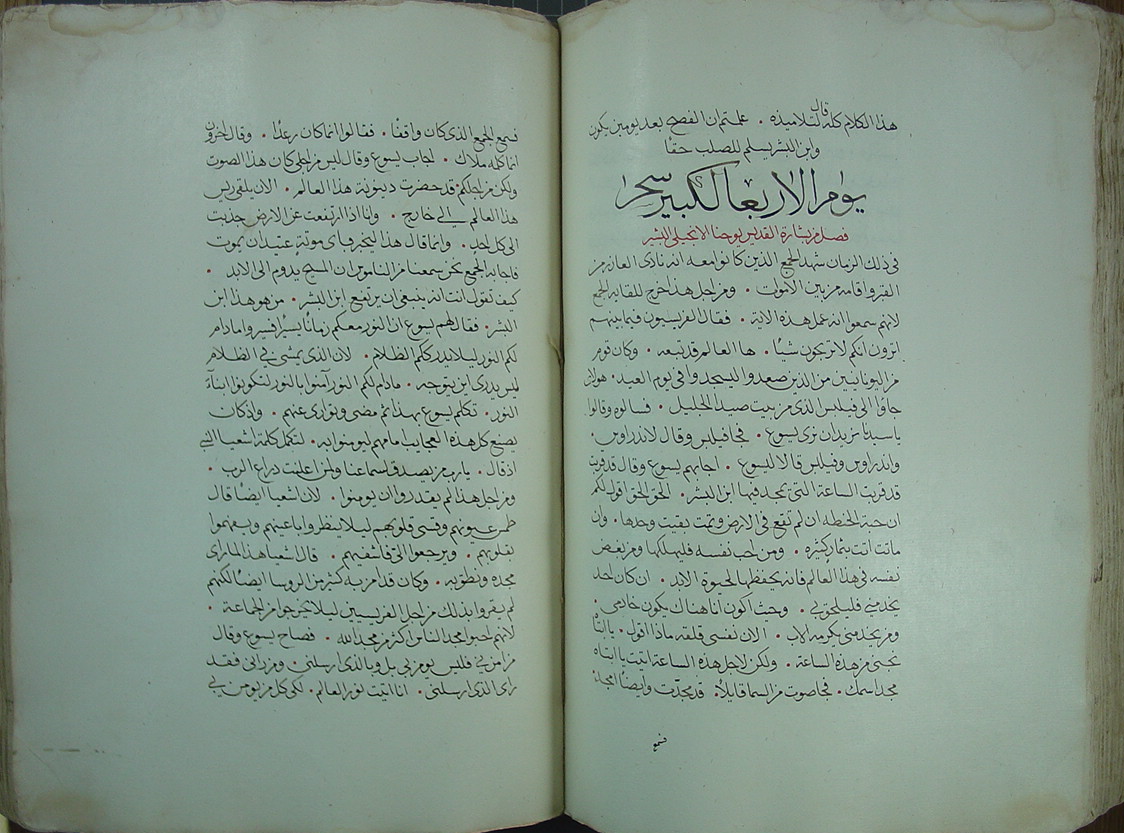 هذا الكلام كله قال لتلاميذه . علمتم ان الفصح بعد يومين يكون
وابن البشر يسلم للصلب حقا
يوم الاربعا الكبير سحرا
فصل من بشارة القديس يوحنا الانجيلي البشر
في ذلك الزمان شهد الجمع الذين كانوا معه انه نادى العازر من
القبر واقامه من بين الاموات . ومن اجل هذا خرج للقايه الجمع
لانهم سمعوا انه عمل هذه الاية . فقال الفريسيون فيما بينهم
اترون انكم لا تربحون شيئا . ها العالم قد تبعه . وكان قوم
من اليونانيين من الذين صعدوا ليسجدوا في يوم العيد . هولاى
جاوا الى فيلبس الذي من بيت صيدا الجليل . فسالوه وقالوا
يا سيدنا نريد ان نرى يسوع . فجا فيلبس وقال لاندراوس .
واندراوس وفيلبس قالا ليسوع . اجابهم يسوع وقال قد قربت
قد قربت الساعة التي يمجد فيها ابن البشر . الحق الحق اقول لكم
ان حبة الحنطه ان لم تقع في الارض وتمت بقيت وحدها . وان
ماتت اتت بثمار كثيره . ومن احب نفسه فليهلكها ومن يغض
نفسه في هذا العالم فانه يحفظها لحيوة الابد . ان كان احد
يخدمني فليلحق بي . وحيث اكون انا هناك يكون خادمي .
ومن يخدمني يكرمه الاب . الان نفسي قلقه ماذا اقول . يا ابتا
نجني من هذه الساعة . ولكن لاجل هذه الساعة اتيت يا ابتاه
مجد اسمك . فجا صوت من السما قايلا . قد مجدت وايضا امجد .
فسمع
فسمع الجمع الذي كان واقفا . فقالوا انما كان رعدا . وقال اخرون
انما كلمه ملاك . اجاب يسوع وقال ليس من اجلي كان هذا الصوت
ولكن من اجلكم . قد حضرت دينونة هذا العالم . الان يلقى ريس
هذا العالم الى خارج . وانا اذا ارتفعت عن الارض جذبت
الي كل احد . وانما قال هذا ليخبر باي موتة عتيد ان يموت
فاجابه الجمع نحن سمعنا من الناموس ان المسيح يدوم الى الابد .
كيف تقول انت انه ينبغي ان يرتفع ابن البشر . من هو هذا ابن
البشر . فقال لهم يسوع ان النور معكم زمانا يسيرا فسيروا ما دام
لكم النور ليلا يدرككم الظلام . لان الذي يمشي في الظلام
ليس يدري اين يتوجه . ما دام لكم النور آمنوا بالنور لتكونوا ابنآ
النور . تكلم يسوع بهذا ثم مضى وتوارى عنهم . واذ كان
يصنع كل هذه العجايب امامهم ليومنوا به . لتكمل كلمة اشعيا النبي
اذ قال . يا رب من يصدق اسماعنا ولمن اعلنت دراع الرب .
ومن اجل هذا لم يقدروا ان يومنوا . لان اشعيا ايضا قال
طمس عيونهم وقسى قلوبهم ليلا ينظروا باعينهم ويفهموا
بقلوبهم . ويرجعوا الي فاشفيهم . قال اشعيا هذا لما راى
مجده ونطق به . وكان قد امن به كثير من الروسا ايضا لكنهم
لم يقروا بذلك من اجل الفريسيين ليلا يخرجوا من الجماعة .
لانهم احبوا مجد الناس اكثر من مجد الله . فصاح يسوع وقال
من امن بي فليس يومن بي بل وبالذي ارسلني . ومن راني فقد
راى الذي ارسلني . انا اتيت نور العالم . لكي كل من يومن بي